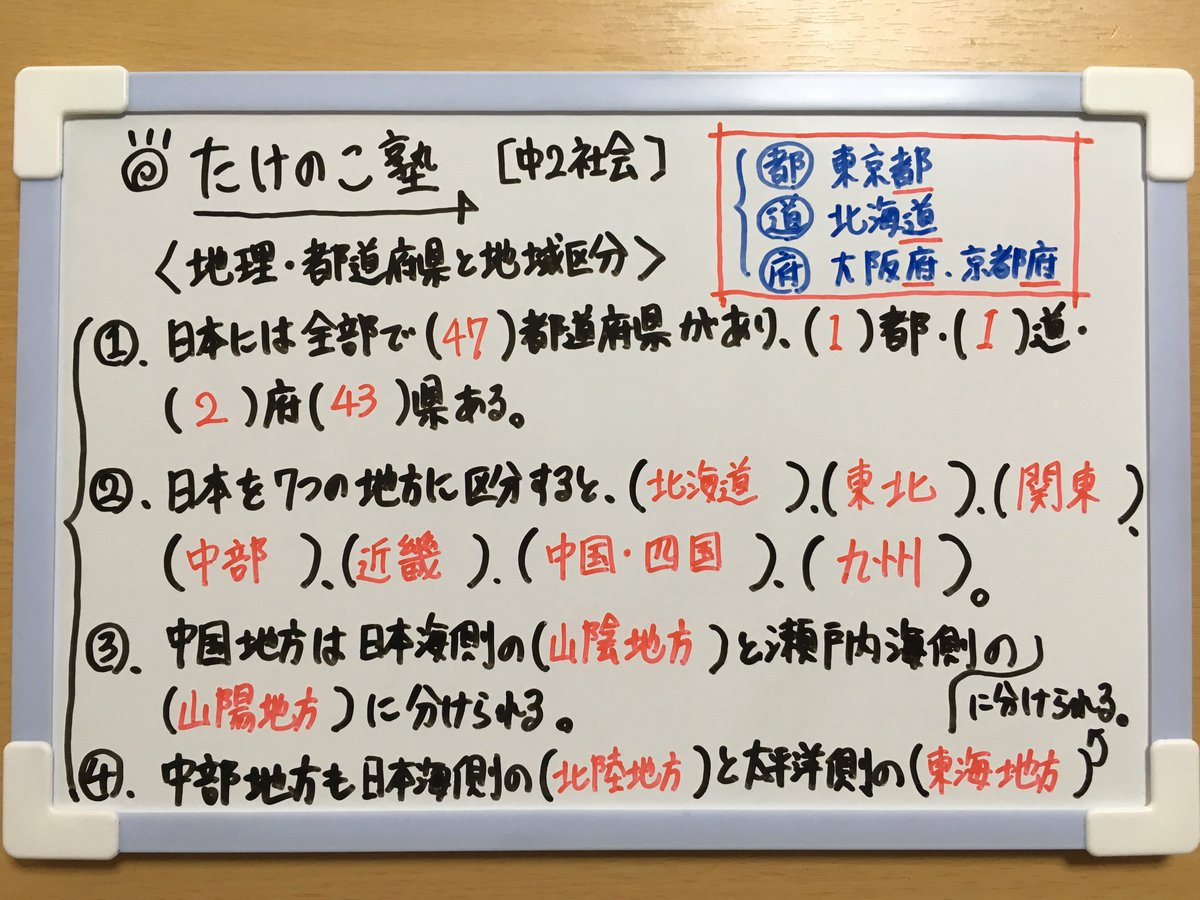 たけのこ塾 [中2社会]
都 東京都
道 北海道
府 大阪府、京都府
〈地理・都道府県と地域区分〉
①、日本には全部で(47)都道府県があり、(1)都・(1)道・
(2)府(43)県ある。
②、日本を7つの地方に区分すると、(北海道)、(東北)、(関東)、
(中部)、(近畿)、(中国・四国)、(九州)。
③、中国地方は日本海側の(山陰地方)と瀬戸内海側の
(山陽地方)に分けられる。
④、中部地方も日本海側の(北陸地方)と太平洋側の(東海地方)
に分けられる。